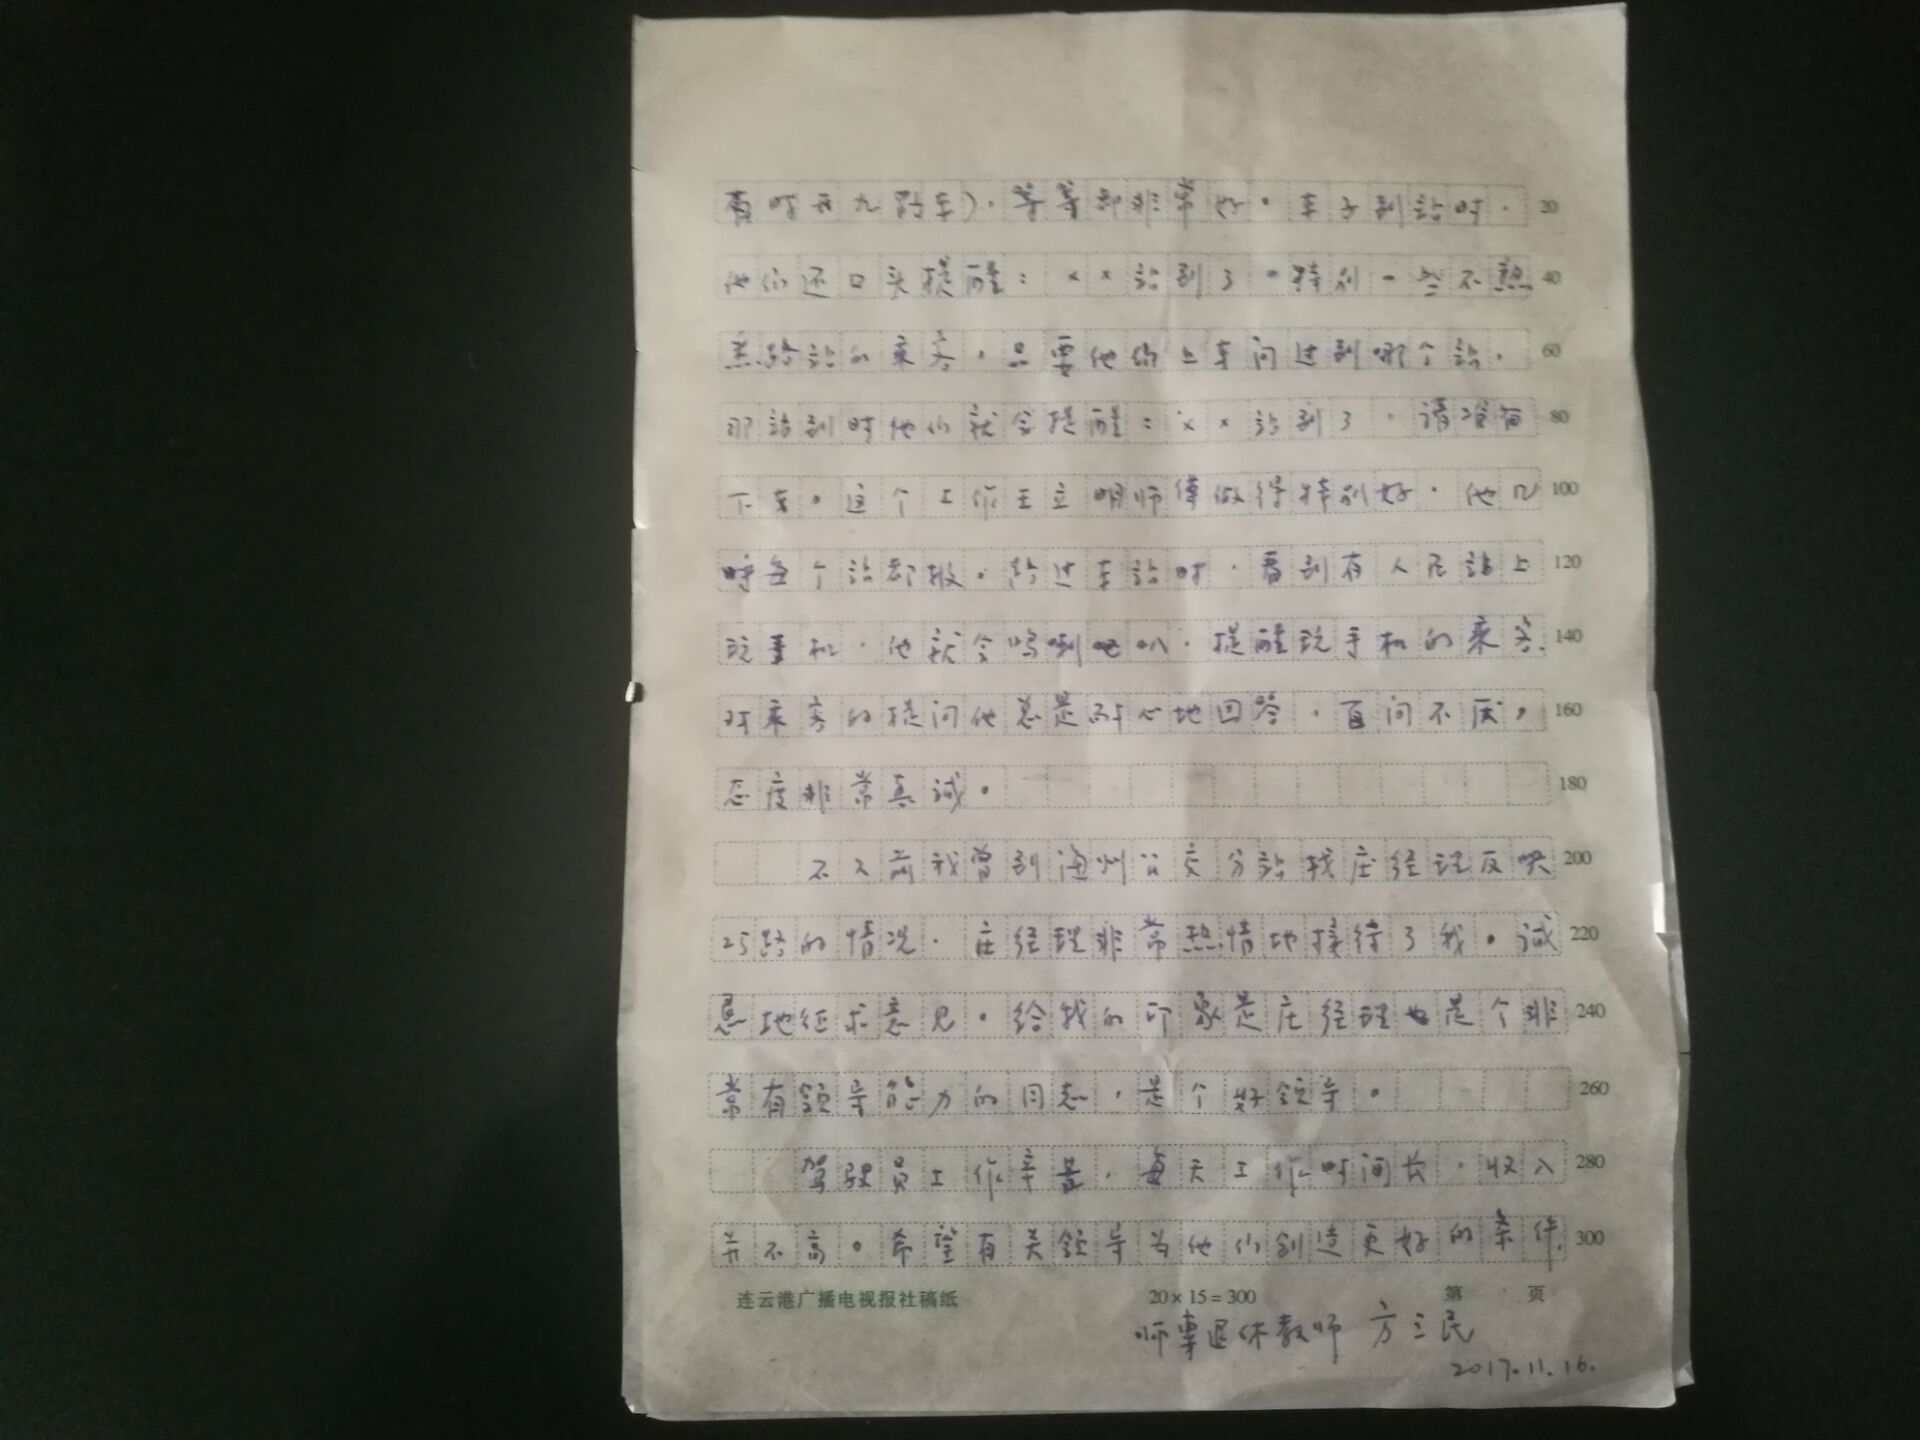 有时五九路车)，等等都非常好。车子到站时， 20
他们还口头提醒：××站到了。特别一些不熟 40
悉路站的乘客，只要他们上车问过到哪个站， 60
那站到时他们就会提醒：××站到了，请准备 80
下车。这个工作王立明师傅做得特别好，他几 100
呼每个站都报。路过车站时，看到有人在站上 120
玩手机，他就会鸣喇叭，提醒玩手机的乘客. 140
对乘客的提问他总是耐心地回答，百问不厌。 160
态度非常真诚。 180
不久前我曾到海州公交分站找庄经理反映 200
25路的情况，庄经理非常热情地接待了我。诚 220
恳地征求意见。给我的印象是庄经理也是个非 240
常有领导能力的同志，是个好领导。 260
驾驶员工作辛苦，每天工作时间长，收入 280
并不高。希望有关领导为他们创造更好的条件. 300
连云港广播电视报社稿纸 20×15=300 第 页
师专退休教师 方三民
2017.11.16.